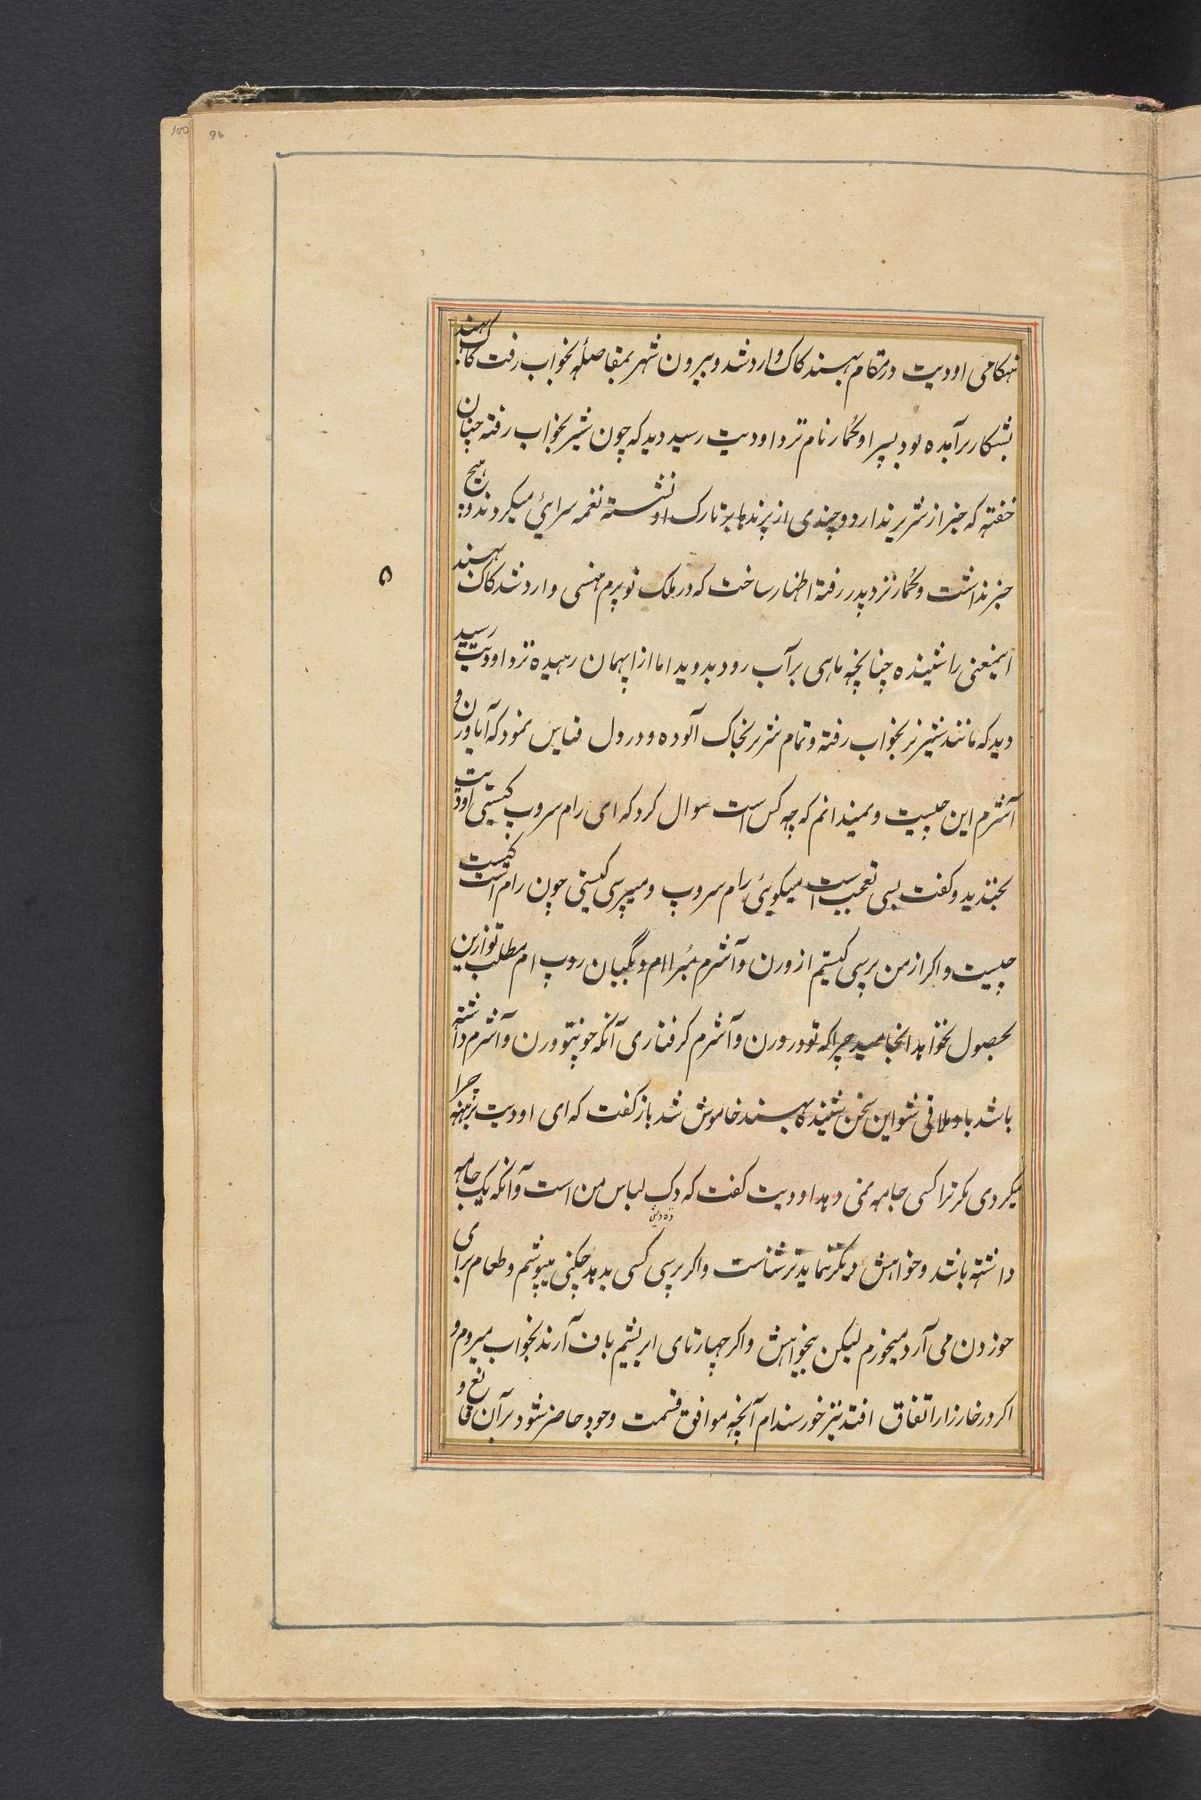 هنکامی اودیت در مقام بهسند کاک وارد شد و بیرون شهر بمفاصله بخواب رفت کاک بهسند
بشکار برآمده بود پسر او کمار نام نزد اودیت رسید دید که چون شیر بخواب رفته چنان
خفته که خبر از شریر ندارد و چندی از پرندها بر تارک او نشسته نغمه سرائی میکردند و هیچ
خبر نداشت و کمار نزد پدر رفته اظهار ساخت که در ملک تو پرم هنسی وارد شد کاک بهسند
اینمعنی را شنیده چنانچه ماهی بر آب رود بدوید اما از ابهمان رهیده نزد اودیت رسید
دید که مانند شیر نر بخواب رفته و تمام شریر بخاک آلوده و در دل قیاس نمود که آیا ورن و
آشرم این چیست و نمیدانم که چه کس است سوال کرد که ای رام سروپ کیستی اودیت
بخندید و کفت بسی تعجب است میکوئی رام سروپ و میپرسی کیستی چون رام است کیست
چیست و اکر از من پرسی کیستم از ورن و آشرم مبرا ام و بکیان روپ ام مطلب تو ازین
بحصول نخواهد انجامید چرا که تو در ورن و آشرم کرفتاری آنکه چون تو ورن و آشرم داشته
باشد باو ملاقی شو این سخن شنیده بهسند خاموش شد باز کفت که ای اودیت برهنه چرا
میکردی مکر ترا کسی جامه نمی دهد اودیت کفت که دک لباس من است و آنکه یک جامه
داشته باشد و خواهش دیکر نماید ترشناست و اکر پرسی کسی بدهد چکنی میپوشم و طعام برای
خوردن می آرد میخورم لیکن بیخواهش و اکر چهارتای ابریشم باف آرند بخواب میروم و
اکر در خارزار اتفاق افتد نیز خورسندام آنچه موافق قسمت وجود حاضر شود بر آن قانع و
۵
96
100